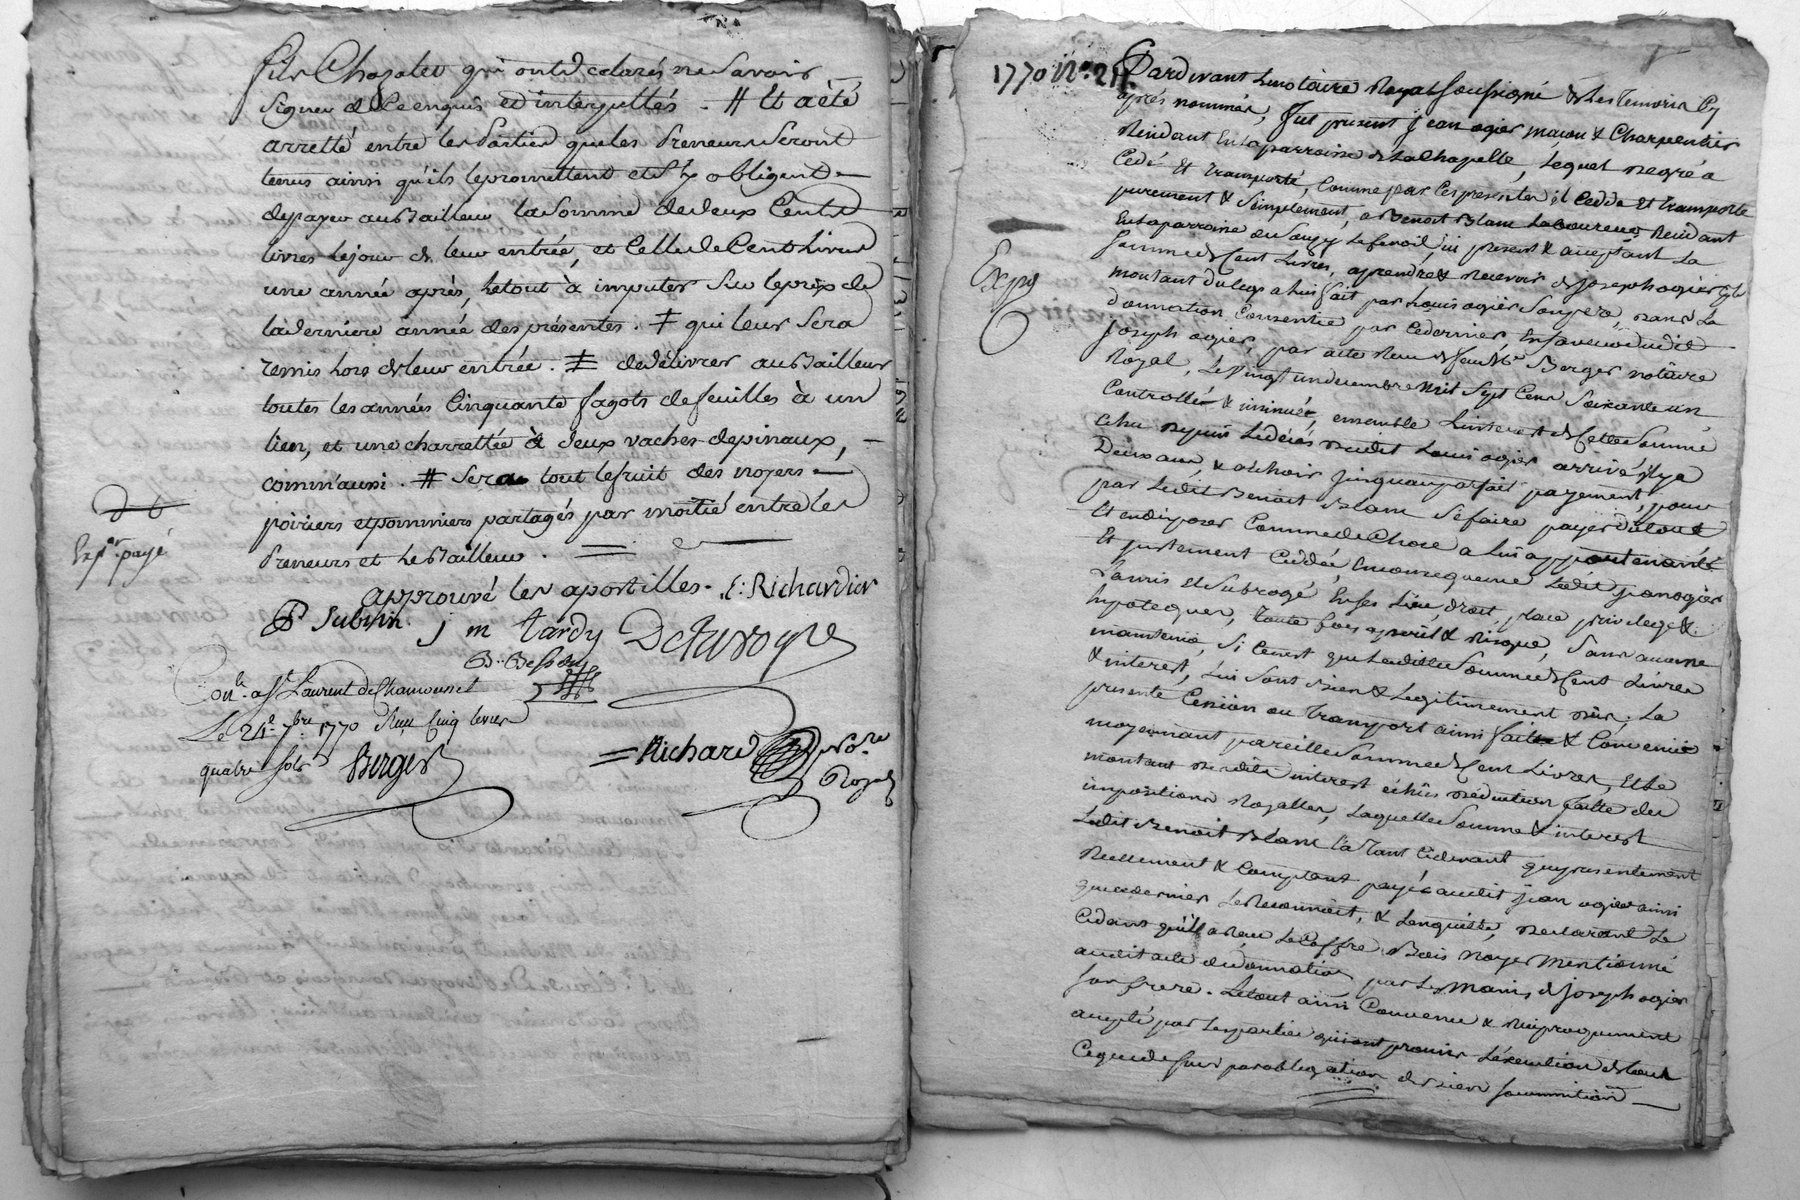 fils Chazalet qui ont déclarés ne savoir
signer de ce enquis et interpellés. # Et a été
arretté entre les Parties que les Preneurs seront
tenus ainsi qu'ils le promettent et s'y obligent
de payer au Bailleur la somme de deux Cents
livres le jour de leur entrée, et Celle de Cent livres
une année après, le tout à imputer sur le prix de
la derniere année des présentes. ‡ qui leur sera
remis hors de leur entrée. ‡ de délivrer au Bailleur
toutes les années Cinquante fagots de feuilles à un
lien, et une charrettée à deux vaches de pinaux,
comm'aussi. # sera tout le fruit des noyers
poiriers et pommiers partagés par moitié entre les
Preneurs et le Bailleur.
Expon payé
approuvé les apostilles. C: Richardier
P Subrin. j m tardy Delaroque
B: Besson
Con.le a St Laurent de Chamousset
Le 24e 7bre 1770 Reçu Cinq livres
quatre sols Berger
= Richard No.re
Royal
1770 No. 211.
Pardevant Le notaire Royal soussigné & les temoins Cy
après nommés, fut présent jean ogier maçon & Charpentier
Résidant En la parroisse de la Chapelle, lequel de gré a
Cedé Et transporté, Comme par Ces presentes il Cedde Et transporte
purement & simplement, a Benoit Blanc Laboureur Residant
En la parroisse du Souzy Le present & acceptant La
somme de Cent Livres, a prendre & recevoir de Joseph ogier
montant du legs a lui fait par Louis ogier son pere, dans La
donnation Consentie par Ce dernier, En faveur dudit
Joseph ogier, par acte Recu de feu Me Berger notaire
Royal, Le vingt un decembre Mil Sept Cens Soixante un
Controllé & insinué, ensemble L'interest de Cette somme
echu depuis Le décès dudit Louis ogier arrivé il y a
Deux ans, & a echoir jusqu'au parfait payement, pour
par Ledit Benoit Blanc se faire payer du tout
Et en disposer Comme de Chose a lui appartenante
Et justement Ceddée, En consequence Ledit jean ogier
L'a mis et subrogé En ses Lieu, droit, place privilege &
hypoteques, toute fois a peril & risque, sans aucune
maintenue, si Ce n'est que Laditte somme de Cent Livres
& interest, Lui sont bien & Legitimement dûs. La
presente Cession ou transport ainsi faitte & Convenue
moyennant pareille somme de Cent Livres, Et le
montant desdits interest échûs déduction faitte des
impositions Royalles, laquelle somme & interest
Ledit Benoit Blanc l'a tant Cidevant que presentement
Reellement & Comptant payé audit jean ogier ainsi
que Ce dernier Le Reconnoit, & L'en quitte, declarant Le
Cedant qu'il a Recu Le Coffre Bois Noyer Mentionné
audit acte de donnation par Les Mains de Joseph ogier
son frere. Le tout ainsi Convenu & Reciproquement
accepté par Les parties qui ont promis L'execution de tout
Ce que dessus par obligation de biens soumissions
Expé